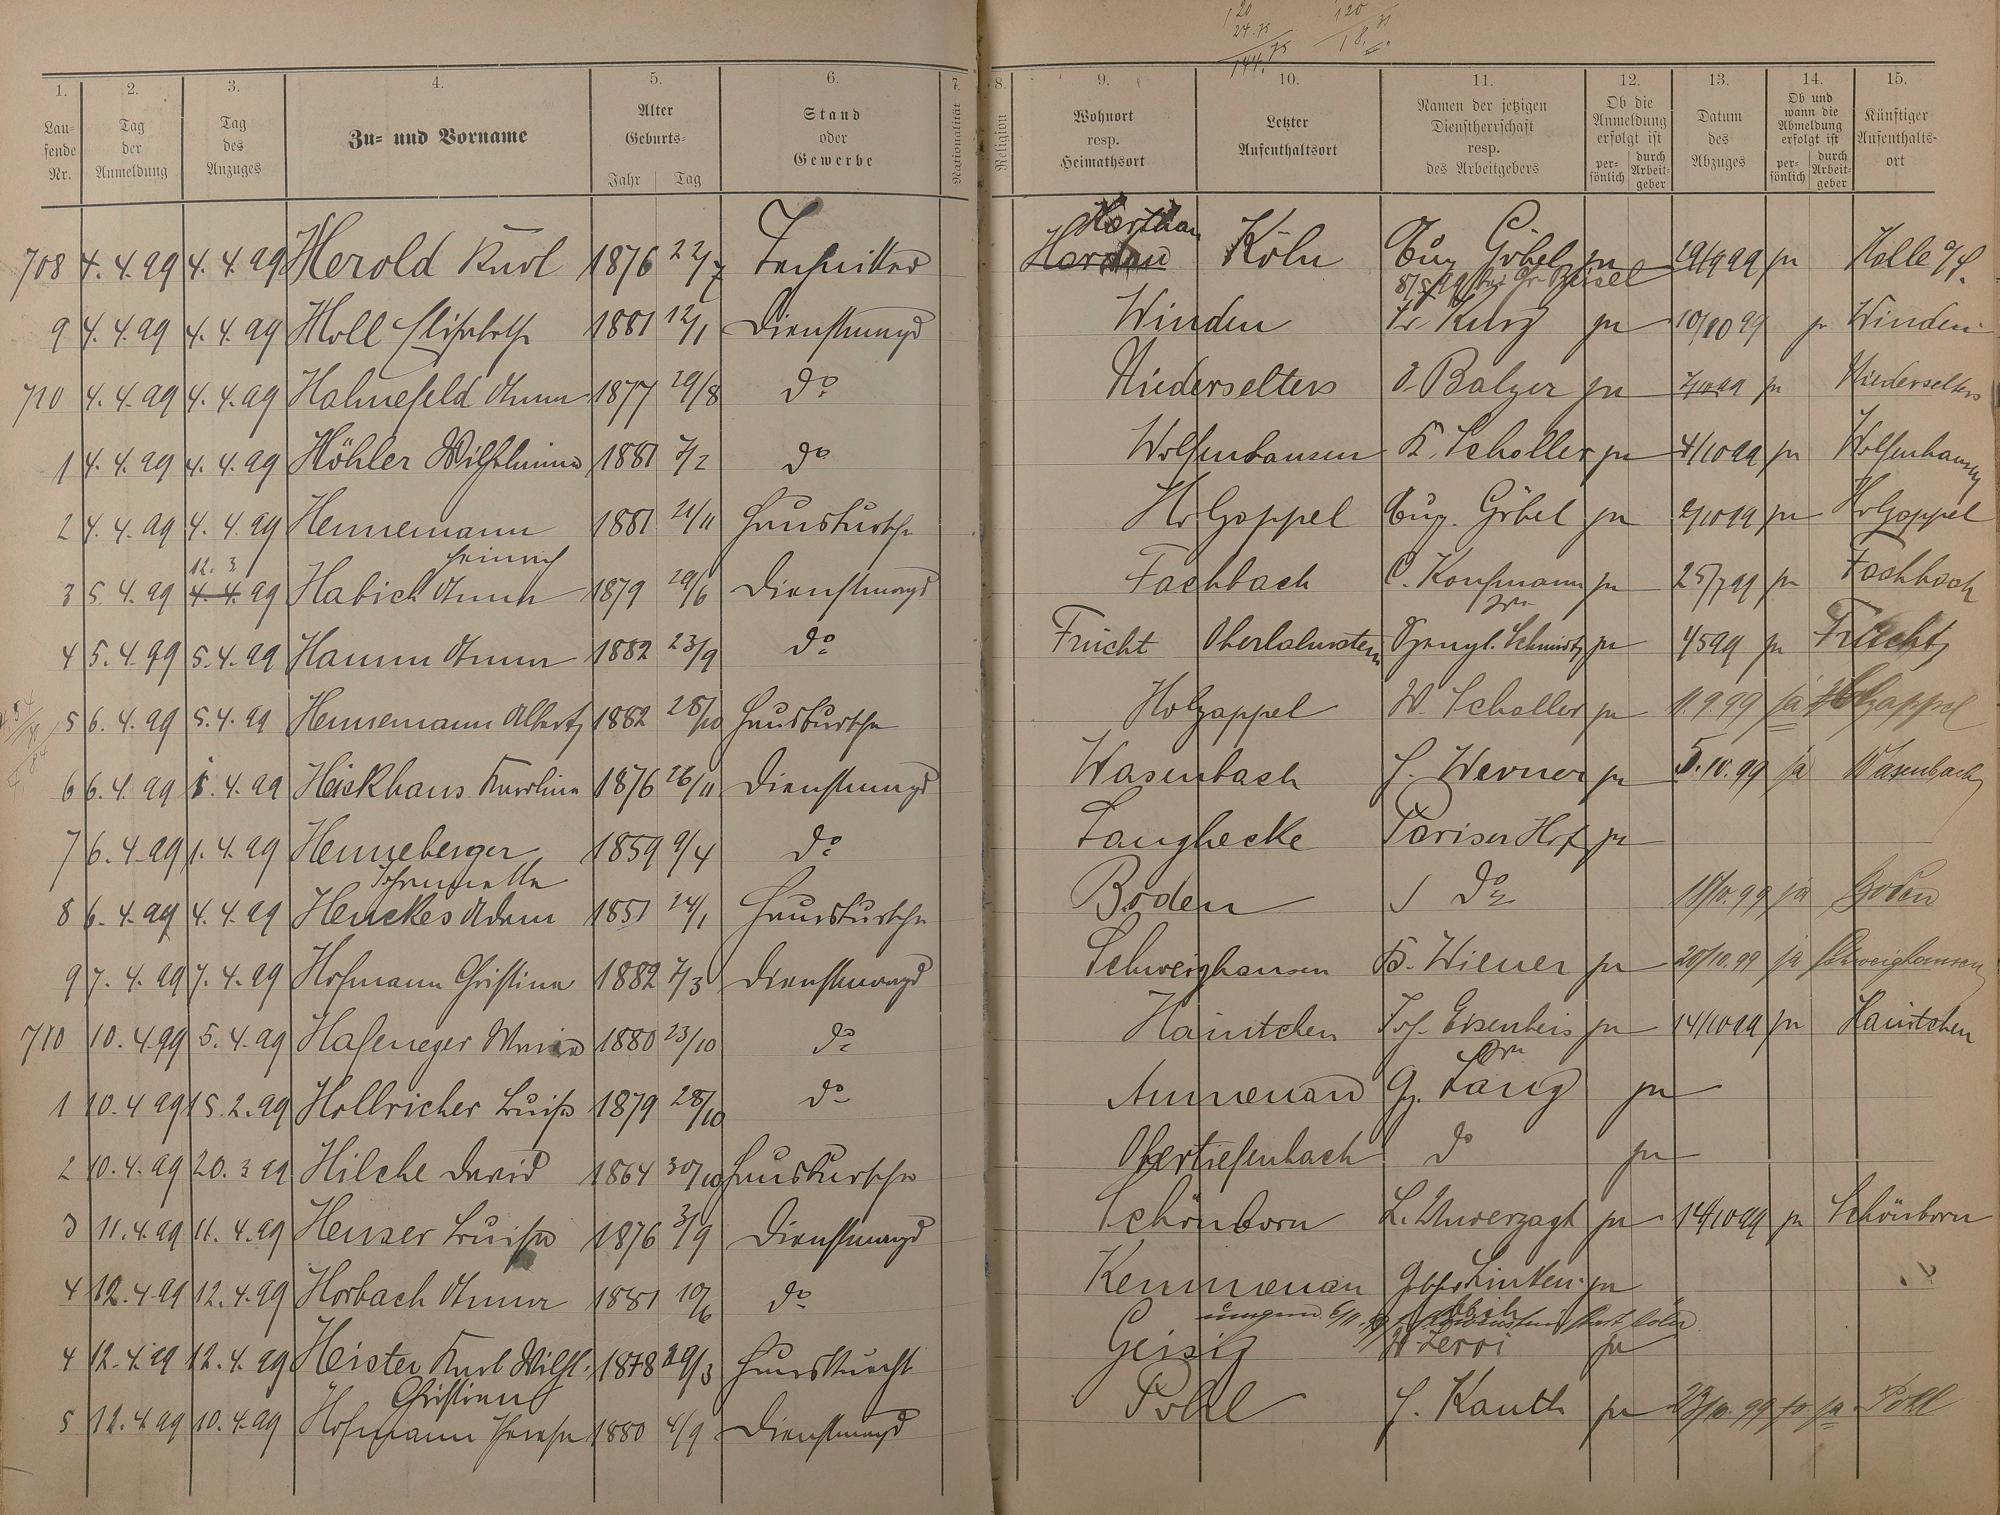 120 120
24.75
144.75
1. 2. 3. 4. 5. 6. 7. 8. 9. 10. 11. 12. 13. 14. 15.
Lau-
fende
Nr. Tag
der
Anmeldung Tag
des
Anzuges Zu- und Vorname Alter
Geburts-
Jahr Tag Stand
oder
Gewerbe Nationalität Religion Wohnort
resp.
Heimathsort Letzter
Aufenthaltsort Namen der jetzigen
Dienstherrschaft
resp.
des Arbeitgebers Ob die
Anmeldung
erfolgt ist
per-
sönlich durch
Arbeit-
geber Datum
des
Abzuges Ob und
wann die
Abmeldung
erfolgt ist
per-
sönlich durch
Arbeit-
geber Künftiger
Aufenthalts-
ort
Harthau
708 4.4.99 4.4.99 Herold Karl 1876 22/7 Techniker Köln Aug. Göbel ja 19/9 99 ja Halle a/S.
9 4.4.99 4.4.99 Holl Elisabeth 1881 12/1 Dienstmagd Winden Fr. Kurz ja 10/10 99 ja Winden
710 4.4.99 4.4.99 Hahnefeld Anna 1877 29/8 do Niederselters J. Balzer ja ja Niederselters
1 4.4.99 4.4.99 Höhler Wilhelmine 1881 7/2 do Wolfenhausen K. Scholler ja 4/10 99 ja Wolfenhausen
2 4.4.99 4.4.99 Hennemann 1881 21/11 Hausbursche Holzappel Aug. Göbel ja 2/10 99 ja Holzappel
Heinrich
12. 3
3 5.4.99 4.4.99 Habich Anna 1879 29/6 Dienstmagd Fachbach C. Kaufmann ja 25/7 99 ja Fachbach
4 5.4.99 5.4.99 Hamm Anna 1882 23/9 do Frücht Oberlahnstein Schmidt ja 4 5 99 ja Frücht
5 6.4.99 5.4.99 Hennemann Albert 1882 28/10 Hausbursche Holzappel W. Scholler ja 11.9.99 ja Holzappel
6 6.4.99 1.4.99 Heickhaus Karoline 1876 26/11 Dienstmagd Wasenbach J. Werner ja 5.10.99 ja Wasenbach
7 6.4.99 1.4.99 Henneberger 1859 9/4 do Langhecke Pariser Hof ja
8 6.4.99 4.4.99 Henckes Adam 1851 24/1 Hausbursche Boden do 18/10.99 ja Boden
9 7.4.99 7.4.99 Hofmann Christina 1882 7/3 Dienstmagd Schweighausen B. Wiener ja 20/10.99 ja Schweighausen
710 10.4.99 5.4.99 Haseneger Maria 1880 23/10 do Haintchen Jos. Eisenbeis ja 14/10 99 ja Haintchen
1 10.4 99 15.2.99 Hollricher Luise 1879 28/10 do Aumenau Gg. Lang ja
2 10.4.99 20.3 99 Hilche David 1864 30/10 Hausbursche Obertiefenbach do ja
3 11.4.99 11.4.99 Heuser Luise 1876 3/9 Dienstmagd Schönborn L. Unverzagt ja 14/10 99 ja Schönborn
4 12.4.99 12.4.99 Horbach Anna 1881 10/6 do Kemmenau Gebr. Linken ja
4 12.4.99 12.4.99 Heister Karl Wilh. 1878 29/3 Hausknecht Geisig ja
Christiane
5 12.4.99 10.4.99 Hofmann Therese 1880 4/9 Dienstmagd Pohl J. Kauth ja 23/10.99 ja Pohl